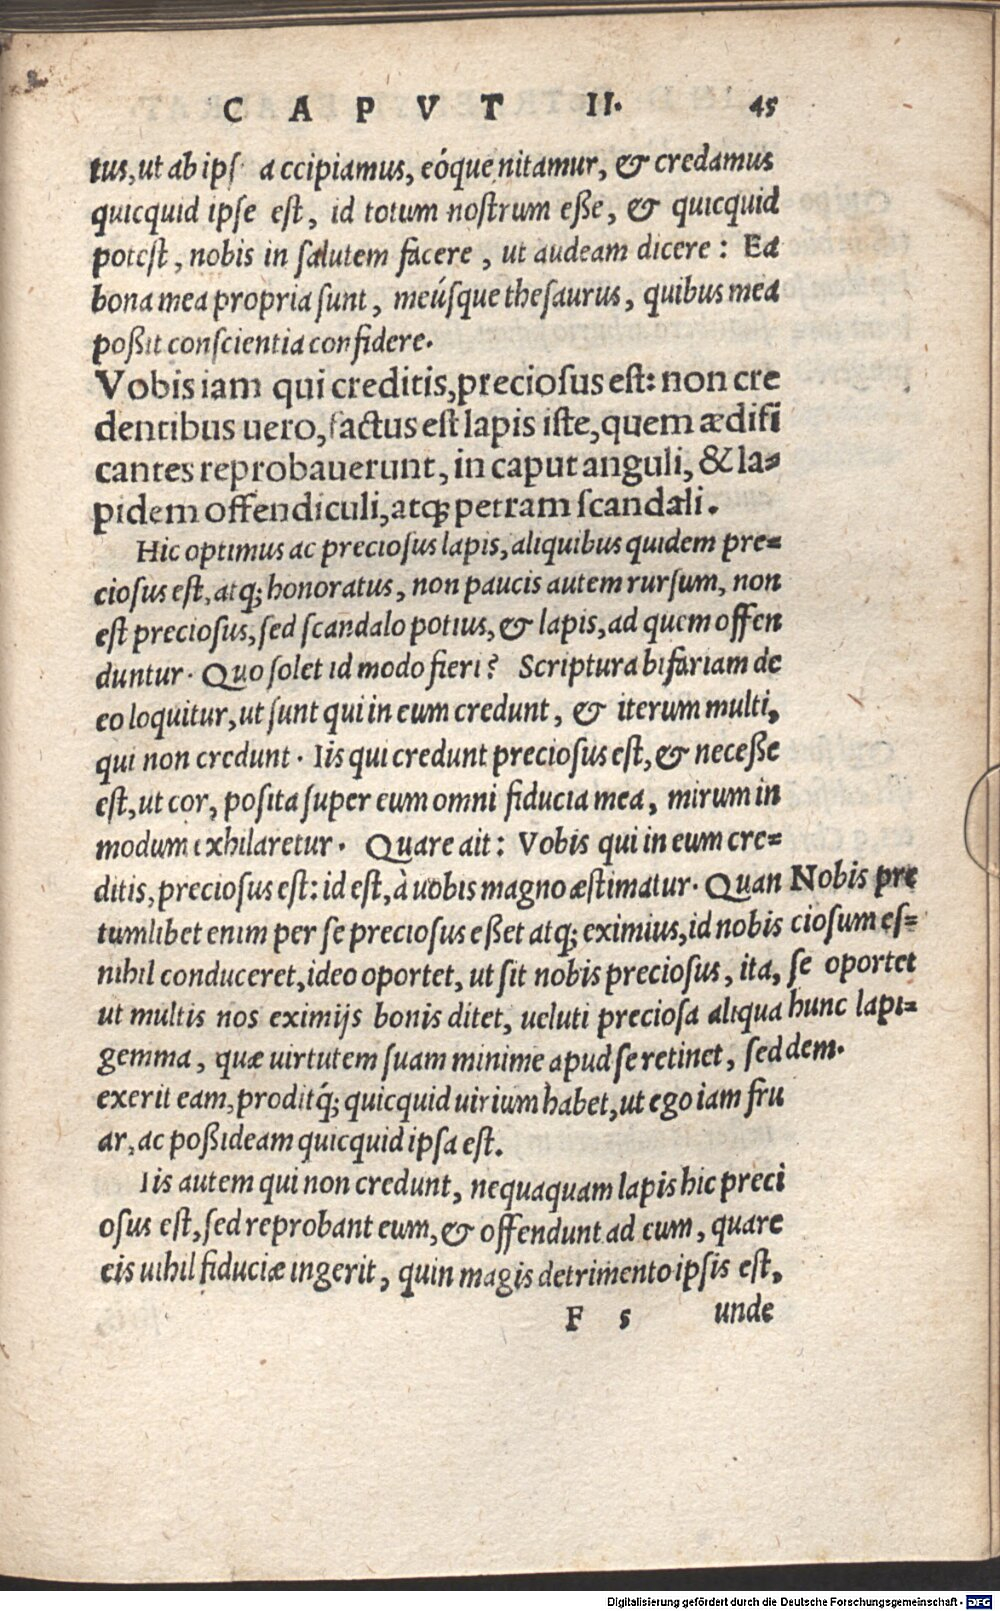 CAPVT II. 45
tus, ut ab ips a ccipiamus, eóque nitamur, & credamus
quicquid ipse est, id totum nostrum eße, & quicquid
potest, nobis in salutem facere, ut audeam dicere: Ea
bona mea propria sunt, meúsque thesaurus, quibus mea
poßit conscientia confidere.
Vobis iam qui creditis, preciosus est: non cre
dentibus uero, factus est lapis iste, quem ædifi
cantes reprobauerunt, in caput anguli, & la=
pidem offendiculi, atq; petram scandali.
Hic optimus ac preciosus lapis, aliquibus quidem pre=
ciosus est, atq; honoratus, non paucis autem rursum, non
est preciosus, sed scandalo potius, & lapis, ad quem offen
duntur. Quo solet id modo fieri? Scriptura bifariam de
eo loquitur, ut sunt qui in eum credunt, & iterum multi,
qui non credunt. Iis qui credunt preciosus est, & neceße
est, ut cor, posita super eum omni fiducia mea, mirum in
modum exhilaretur. Quare ait: Vobis qui in eum cre=
ditis, preciosus est: id est, à uobis magno æstimatur. Quan
tumlibet enim per se preciosus eßet atq; eximius, id nobis
nihil conduceret, ideo oportet, ut sit nobis preciosus, ita,
ut multis nos eximijs bonis ditet, ueluti preciosa aliqua
gemma, quæ uirtutem suam minime apud se retinet, sed
exerit eam, prodítq; quicquid uirium habet, ut ego iam fru
ar, ac poßideam quicquid ipsa est.
Nobis pre
ciosum es=
se oportet
hunc lapi=
dem.
Iis autem qui non credunt, nequaquam lapis hic preci
osus est, sed reprobant eum, & offendunt ad eum, quare
eis nihil fiduciæ ingerit, quin magis detrimento ipsis est,
F 5 unde
Digitalisierung gefördert durch die Deutsche Forschungsgemeinschaft - DFG